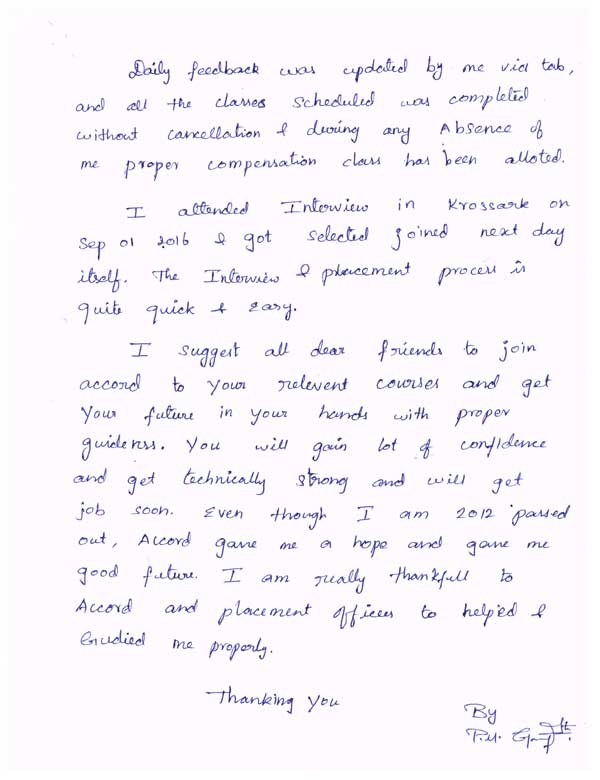 Daily feedback was updated by me via tab,
and all the classes scheduled was completed
without cancellation & during any Absence of
me proper compensation class has been alloted.
I attended Interview in Krossark on
Sep 01 2016 & got selected joined next day
itself. The Interview & placement process is
quite quick & Easy.
I suggest all dear friends to join
accord to your relevent courses and get
your future in your hands with proper
guideness. You will gain lot of confidence
and get technically strong and will get
job soon. Even though I am 2012 passed
out, Accord gave me a hope and gave me
good future. I am really thankfull to
Accord and placement officer to helped &
me properly.
Thanking you
By
P.M.